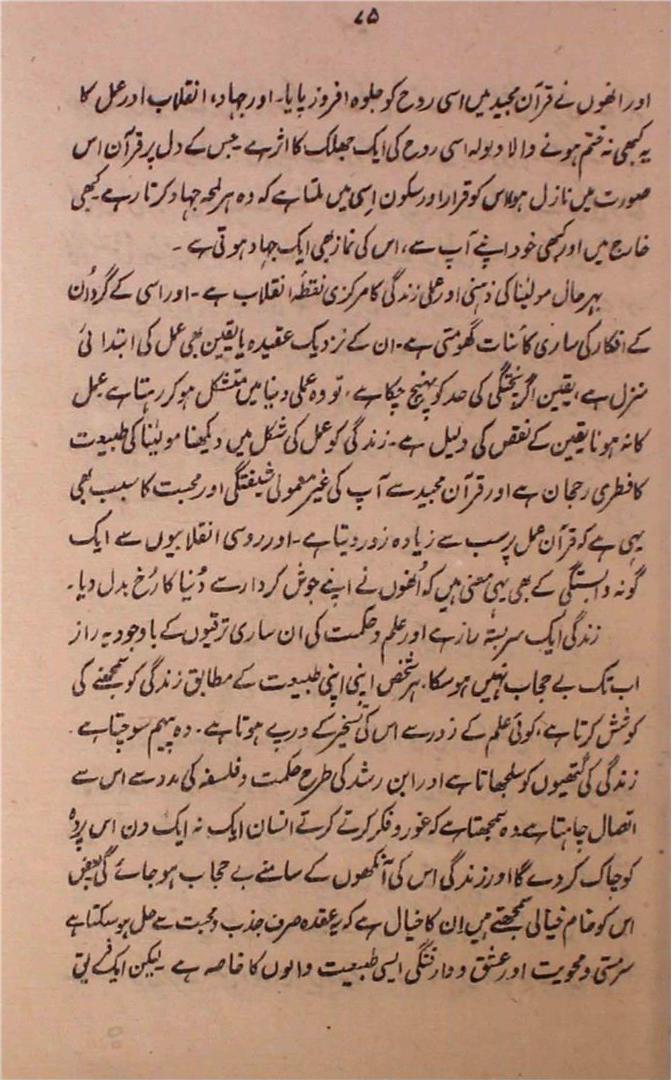 ۷۵
اور انھوں نے قرآن مجید میں اسی روح کو جلوہ افروز پایا۔ اور جہاد، انقلاب اور عمل کا
یہ کبھی نہ ختم ہونے والا ولولہ اسی روح کی ایک جھلک کا اثر ہے جس کے دل پر قرآن اس
صورت میں نازل ہو اس کو قرار اور سکون اسی میں ملتا ہے کہ وہ ہر لمحہ جہاد کرتا رہے کبھی
خارج میں اور کبھی خود اپنے آپ سے، اس کی نماز بھی ایک جہاد ہوتی ہے ۔
بہر حال مولیٰنا کی ذہنی اور عملی زندگی کا مرکزی نقطہ انقلاب ہے ۔ اور اسی کے گرد اُن
کے افکار کی ساری کائنات گھومتی ہے۔ ان کے نزدیک عقیدہ یا یقین بھی عمل کی ابتدائی
منزل ہے، یقین اگر پختگی کی حد کو پہنچ چکا ہے، تو وہ عملی دنیا میں متشکل ہو کر رہتا ہے عمل
کا نہ ہونا یقین کے نقص کی دلیل ہے۔ زندگی کو عمل کی شکل میں دیکھنا مولیٰنا کی طبیعت
کا فطری رجحان ہے اور قرآن مجید سے آپ کی غیر معمولی شیفتگی اور محبت کا سبب بھی
یہی ہے کہ قرآن عمل پر سب سے زیادہ زور دیتا ہے ۔ اور روسی انقلابیوں سے ایک
گونہ وابستگی کے بھی یہی معنی ہیں کہ اُنھوں نے اپنے جوش کردار سے دُنیا کا رُخ بدل دیا۔
زندگی ایک سربستہ راز ہے اور علم و حکمت کی ان ساری ترقیوں کے باوجود یہ راز
اب تک بے حجاب نہیں ہو سکا، ہر شخص اپنی اپنی طبیعت کے مطابق زندگی کو سمجھنے کی
کوشش کرتا ہے، کوئی علم کے زور سے اس کی تسخیر کے درپے ہوتا ہے۔ وہ پیہم سوچتا ہے۔
زندگی کی گتھیوں کو سلجھاتا ہے اور ابن رشد کی طرح حکمت و فلسفہ کی مدد سے اس سے
اتصال چاہتا ہے وہ سمجھتا ہے کہ غور و فکر کرتے کرتے انسان ایک نہ ایک دن اس پردہ
کو چاک کر دے گا اور زندگی اس کی آنکھوں کے سامنے بے حجاب ہو جائے گی بعض
اس کو خام خیالی سمجھتے ہیں ان کا خیال ہے کہ یہ عقدہ صرف جذب و محبت سے حل ہو سکتا ہے
سرمستی و محویت اور عشق و وارفتگی ایسی طبیعت والوں کا خاصہ ہے لیکن ایک فریق